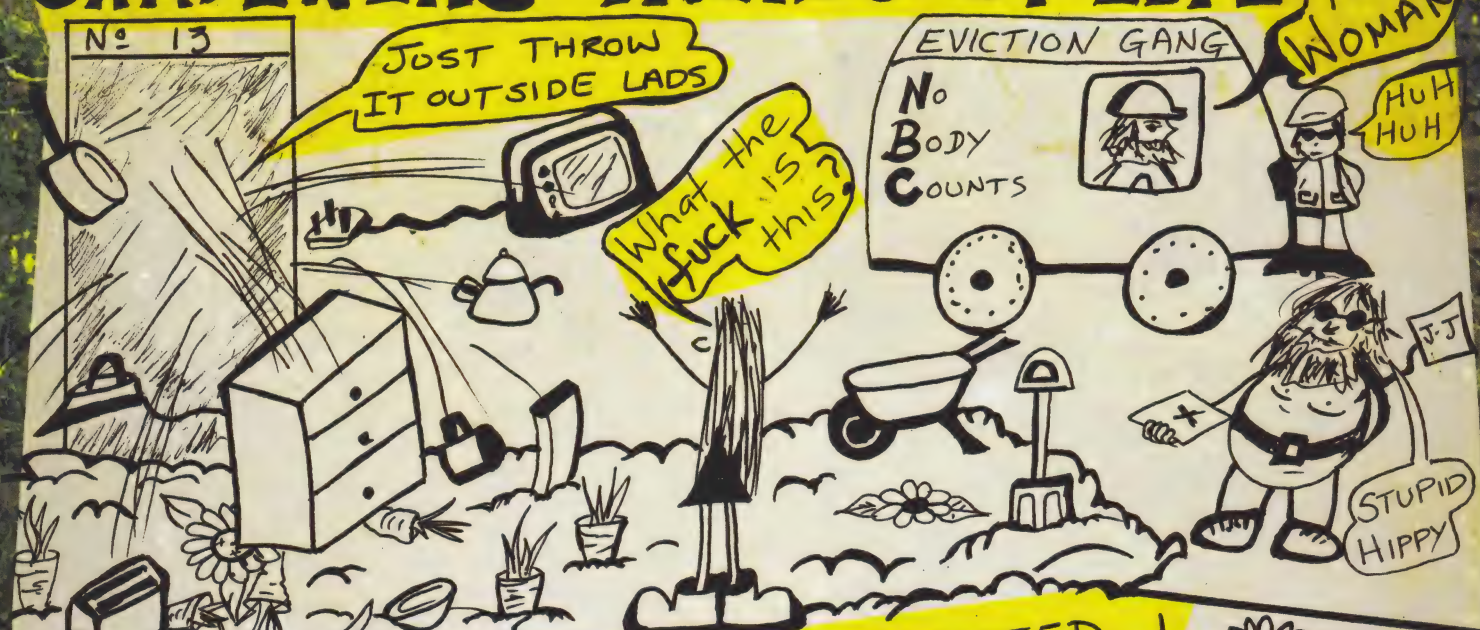 Nº 13
JUST THROW
IT OUTSIDE LADS
What the
fuck is
this?
EVICTION GANG
No
BODY
COUNTS
WOMAN
HUH
HUH
J-J
X
STUPID
HIPPY